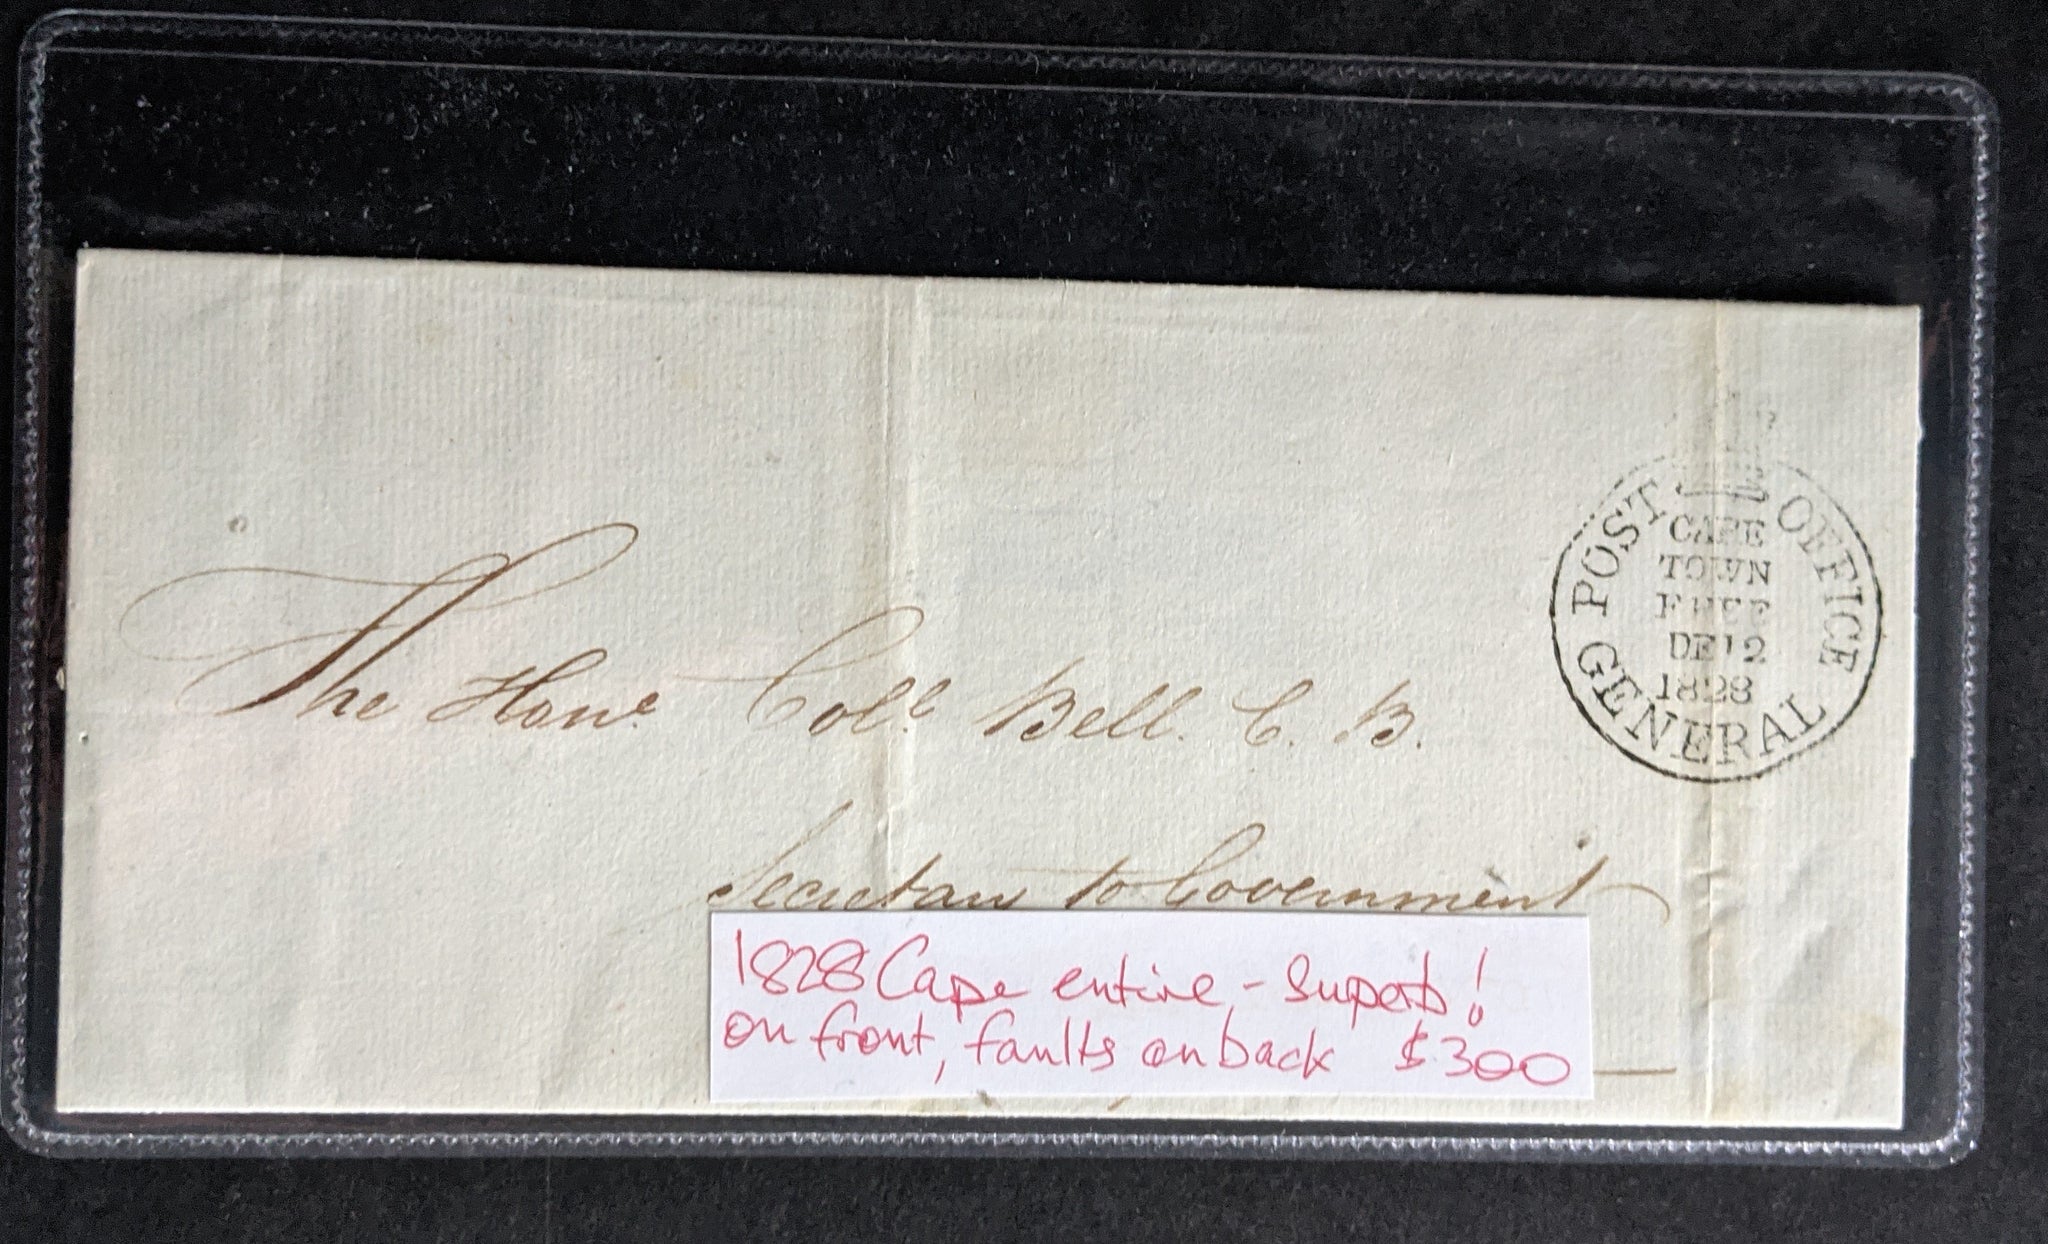 The Hone. Coll. Bell. C. B.
Secretary to Government
POST OFFICE
CAPE
TOWN
FREE
DE 12
1828
GENERAL
1828 Cape entire - Superb!
on front, faults on back $300